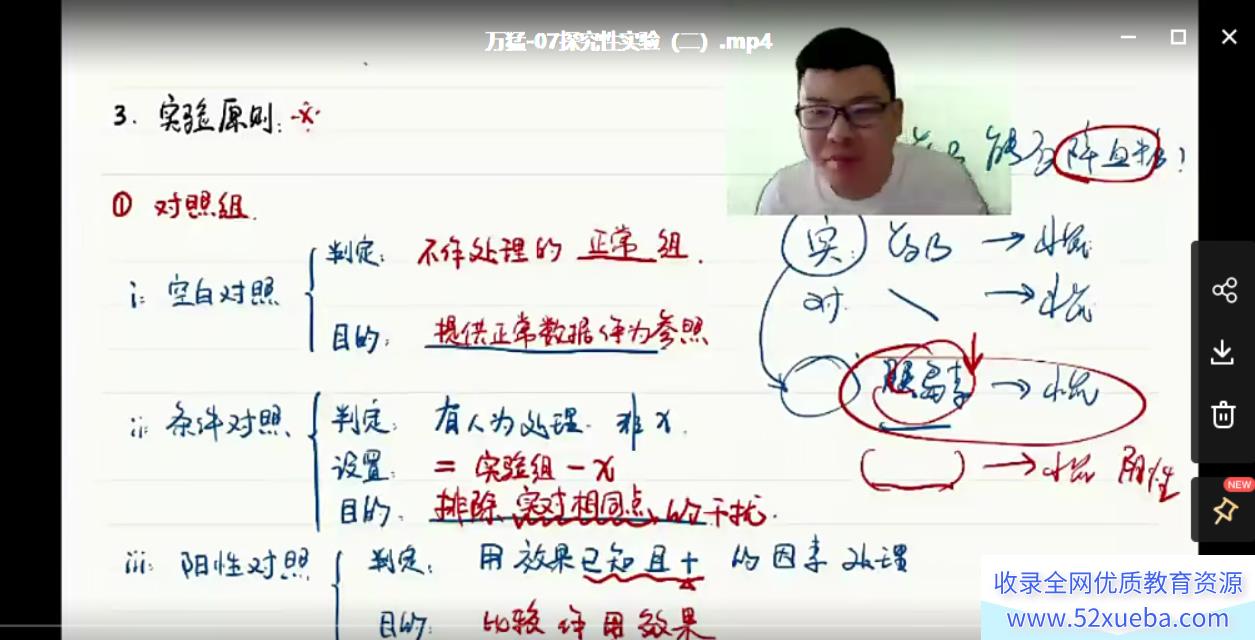 万猛-07探究性实验（二）.mp4
3. 实验原则:
① 对照组.
i: 空白对照
判定: 不作处理的 正常 组.
目的: 提供正常数据作为参照
ii: 条件对照
判定: 有人为处理. 非x.
设置: = 实验组-x
目的: 排除 实对相同点 的干扰.
iii: 阳性对照
判定: 用效果已知且+ 的因素处理
目的: 比较作用效果
能否降血糖?
实:
对.
胰岛素
阴性
NEW
收录全网优质教育资源
www.52xueba.com